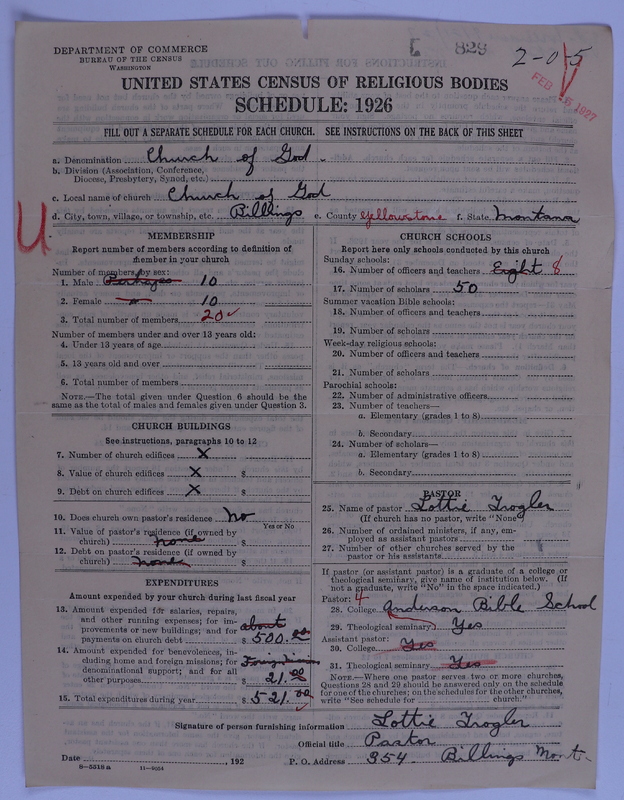 829
2-0 5
FEB 15 1927
DEPARTMENT OF COMMERCE
BUREAU OF THE CENSUS
WASHINGTON
UNITED STATES CENSUS OF RELIGIOUS BODIES
SCHEDULE: 1926
FILL OUT A SEPARATE SCHEDULE FOR EACH CHURCH. SEE INSTRUCTIONS ON THE BACK OF THIS SHEET
a. Denomination Church of God
b. Division (Association, Conference,
Diocese, Presbytery, Synod, etc.)
c. Local name of church Church of God
d. City, town, village, or township, etc. Billings e. County Yellowstone f. State Montana
U
MEMBERSHIP
Report number of members according to definition of
member in your church
Number of members by sex:
1. Male Perhaps 10
2. Female 10
3. Total number of members 20
Number of members under and over 13 years old:
4. Under 13 years of age
5. 13 years old and over
6. Total number of members
NOTE.—The total given under Question 6 should be the
same as the total of males and females given under Question 3.
CHURCH BUILDINGS
See instructions, paragraphs 10 to 12
7. Number of church edifices X
8. Value of church edifices X $
9. Debt on church edifices X $
10. Does church own pastor's residence No
Yes or No
11. Value of pastor's residence (if owned by
church) none $
12. Debt on pastor's residence (if owned by
church) none $
EXPENDITURES
Amount expended by your church during last fiscal year
13. Amount expended for salaries, repairs,
and other running expenses; for im- about
provements or new buildings; and for
payments on church debt $ 500.00
14. Amount expended for benevolences, in-
cluding home and foreign missions; for
denominational support; and for all
other purposes $ 21.00
15. Total expenditures during year $ 521.00
CHURCH SCHOOLS
Report here only schools conducted by this church
Sunday schools:
16. Number of officers and teachers Eight 8
17. Number of scholars 50
Summer vacation Bible schools:
18. Number of officers and teachers
19. Number of scholars
Week-day religious schools:
20. Number of officers and teachers
21. Number of scholars
Parochial schools:
22. Number of administrative officers
23. Number of teachers—
a. Elementary (grades 1 to 8)
b. Secondary
24. Number of scholars—
a. Elementary (grades 1 to 8)
b. Secondary
PASTOR
25. Name of pastor Lottie Trogler
(If church has no pastor, write "None")
26. Number of ordained ministers, if any, em-
ployed as assistant pastors
27. Number of other churches served by the
pastor or his assistants
If pastor (or assistant pastor) is a graduate of a college or
theological seminary, give name of institution below. (If
not a graduate, write "No" in the space indicated.)
Pastor: 4
28. College Anderson Bible School
29. Theological seminary Yes
Assistant pastor:
30. College Yes
31. Theological seminary Yes
NOTE.—Where one pastor serves two or more churches,
Questions 28 and 29 should be answered only on the schedule
for one of the churches; on the schedules for the other churches,
write "See schedule for church."
Signature of person furnishing information Lottie Trogler
Official title Pastor
Date , 192 P. O. Address 354 Billings Mont.
8-5518a 11-9054